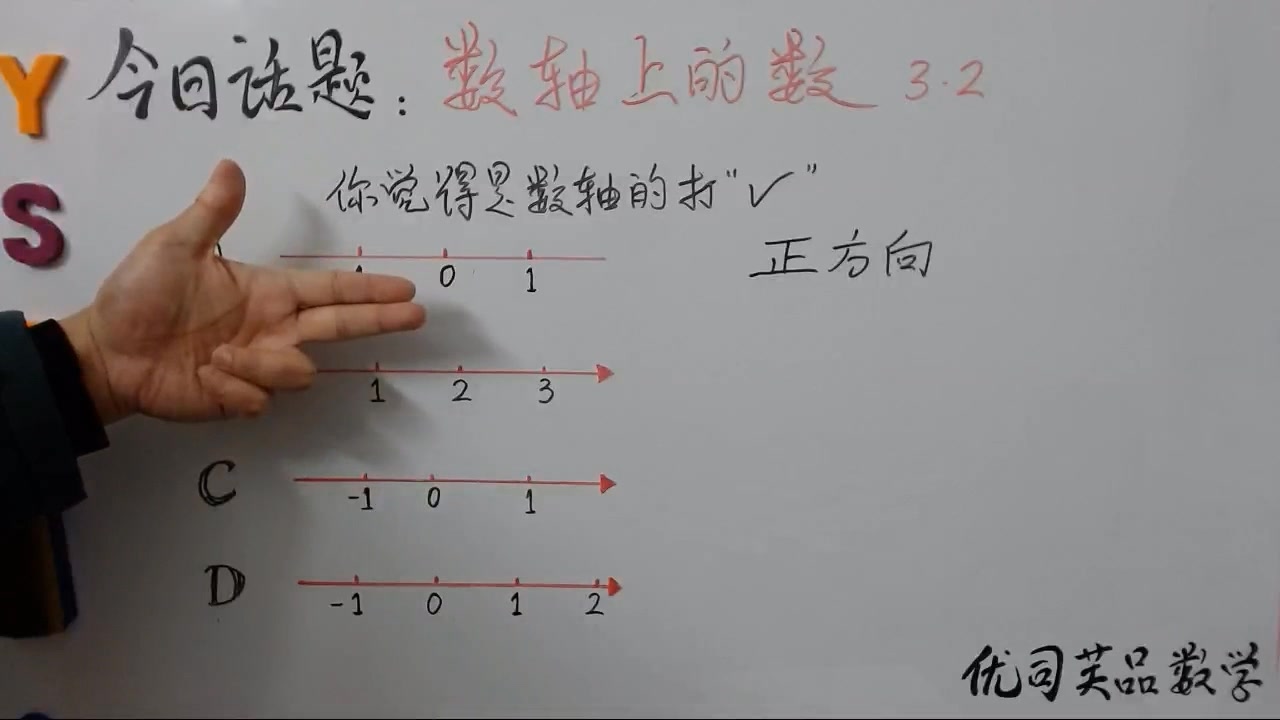 今日话题：数轴上的数 3.2
Y
S
你觉得是数轴的打“✓”
正方向
0 1
1 2 3
C
-1 0 1
D
-1 0 1 2
优司芙品数学